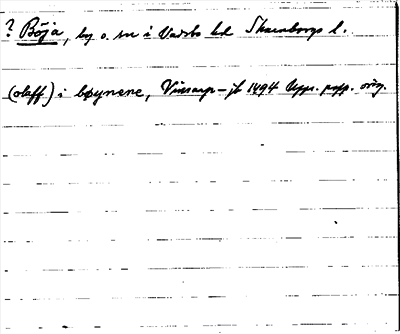 ? Böja, by o. sn i Vadsbo hd Skaraborgs l.
(oleff) i bøynene, Vinsarp – jb 1494 Upps. papp. orig.